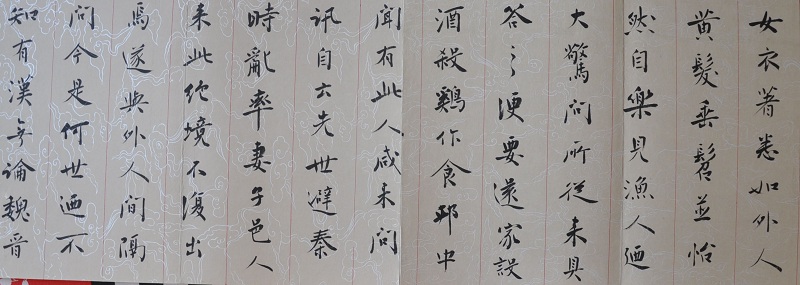 女衣著悉如外人
黃髮垂髫並怡
然自樂見漁人廼
大驚問所從來具
答之便要還家設
酒殺鷄作食邨中
聞有此人咸来問
訊自云先世避秦
時亂率妻子邑人
来此绝境不復出
焉遂與外人間隔
問今是何世迺不
知有漢无論魏晋